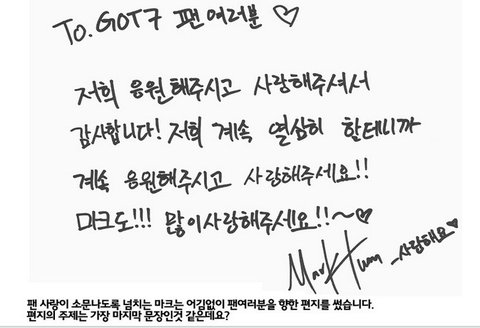 To. GOT7 팬 여러분 ♡
저희 응원해주시고 사랑해주셔서
감사합니다! 저희 계속 열심히 할테니까
계속 응원해주시고 사랑해주세요!!
마크도!!! 많이사랑해주세요!!~♡
Mark Tuan -사랑해요♡
팬 사랑이 소문나도록 넘치는 마크는 어김없이 팬여러분을 향한 편지를 썼습니다.
편지의 주제는 가장 마지막 문장인것 같은데요?